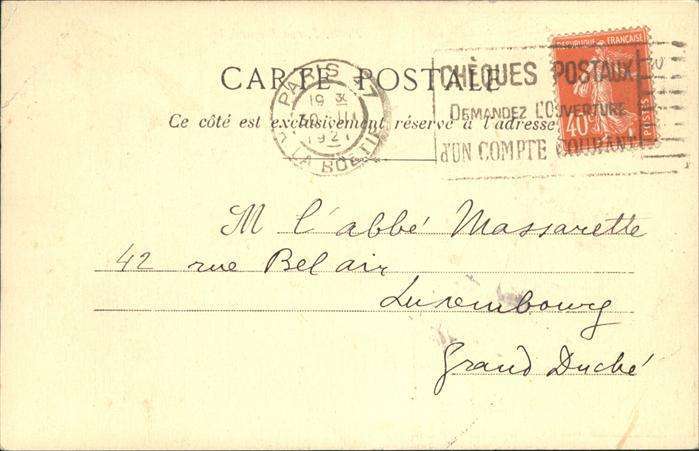 RÉPUBLIQUE FRANÇAISE
40c
POSTES
CARTE POSTALE
Ce côté est exclusivement réservé à l'adresse
PARIS 47
19 30
1927
R. LA BOËTIE
CHÈQUES POSTAUX
DEMANDEZ L'OUVERTURE
D'UN COMPTE COURANT
M l'abbé Massarette
42 rue Bel air
Luxembourg
Grand Duché